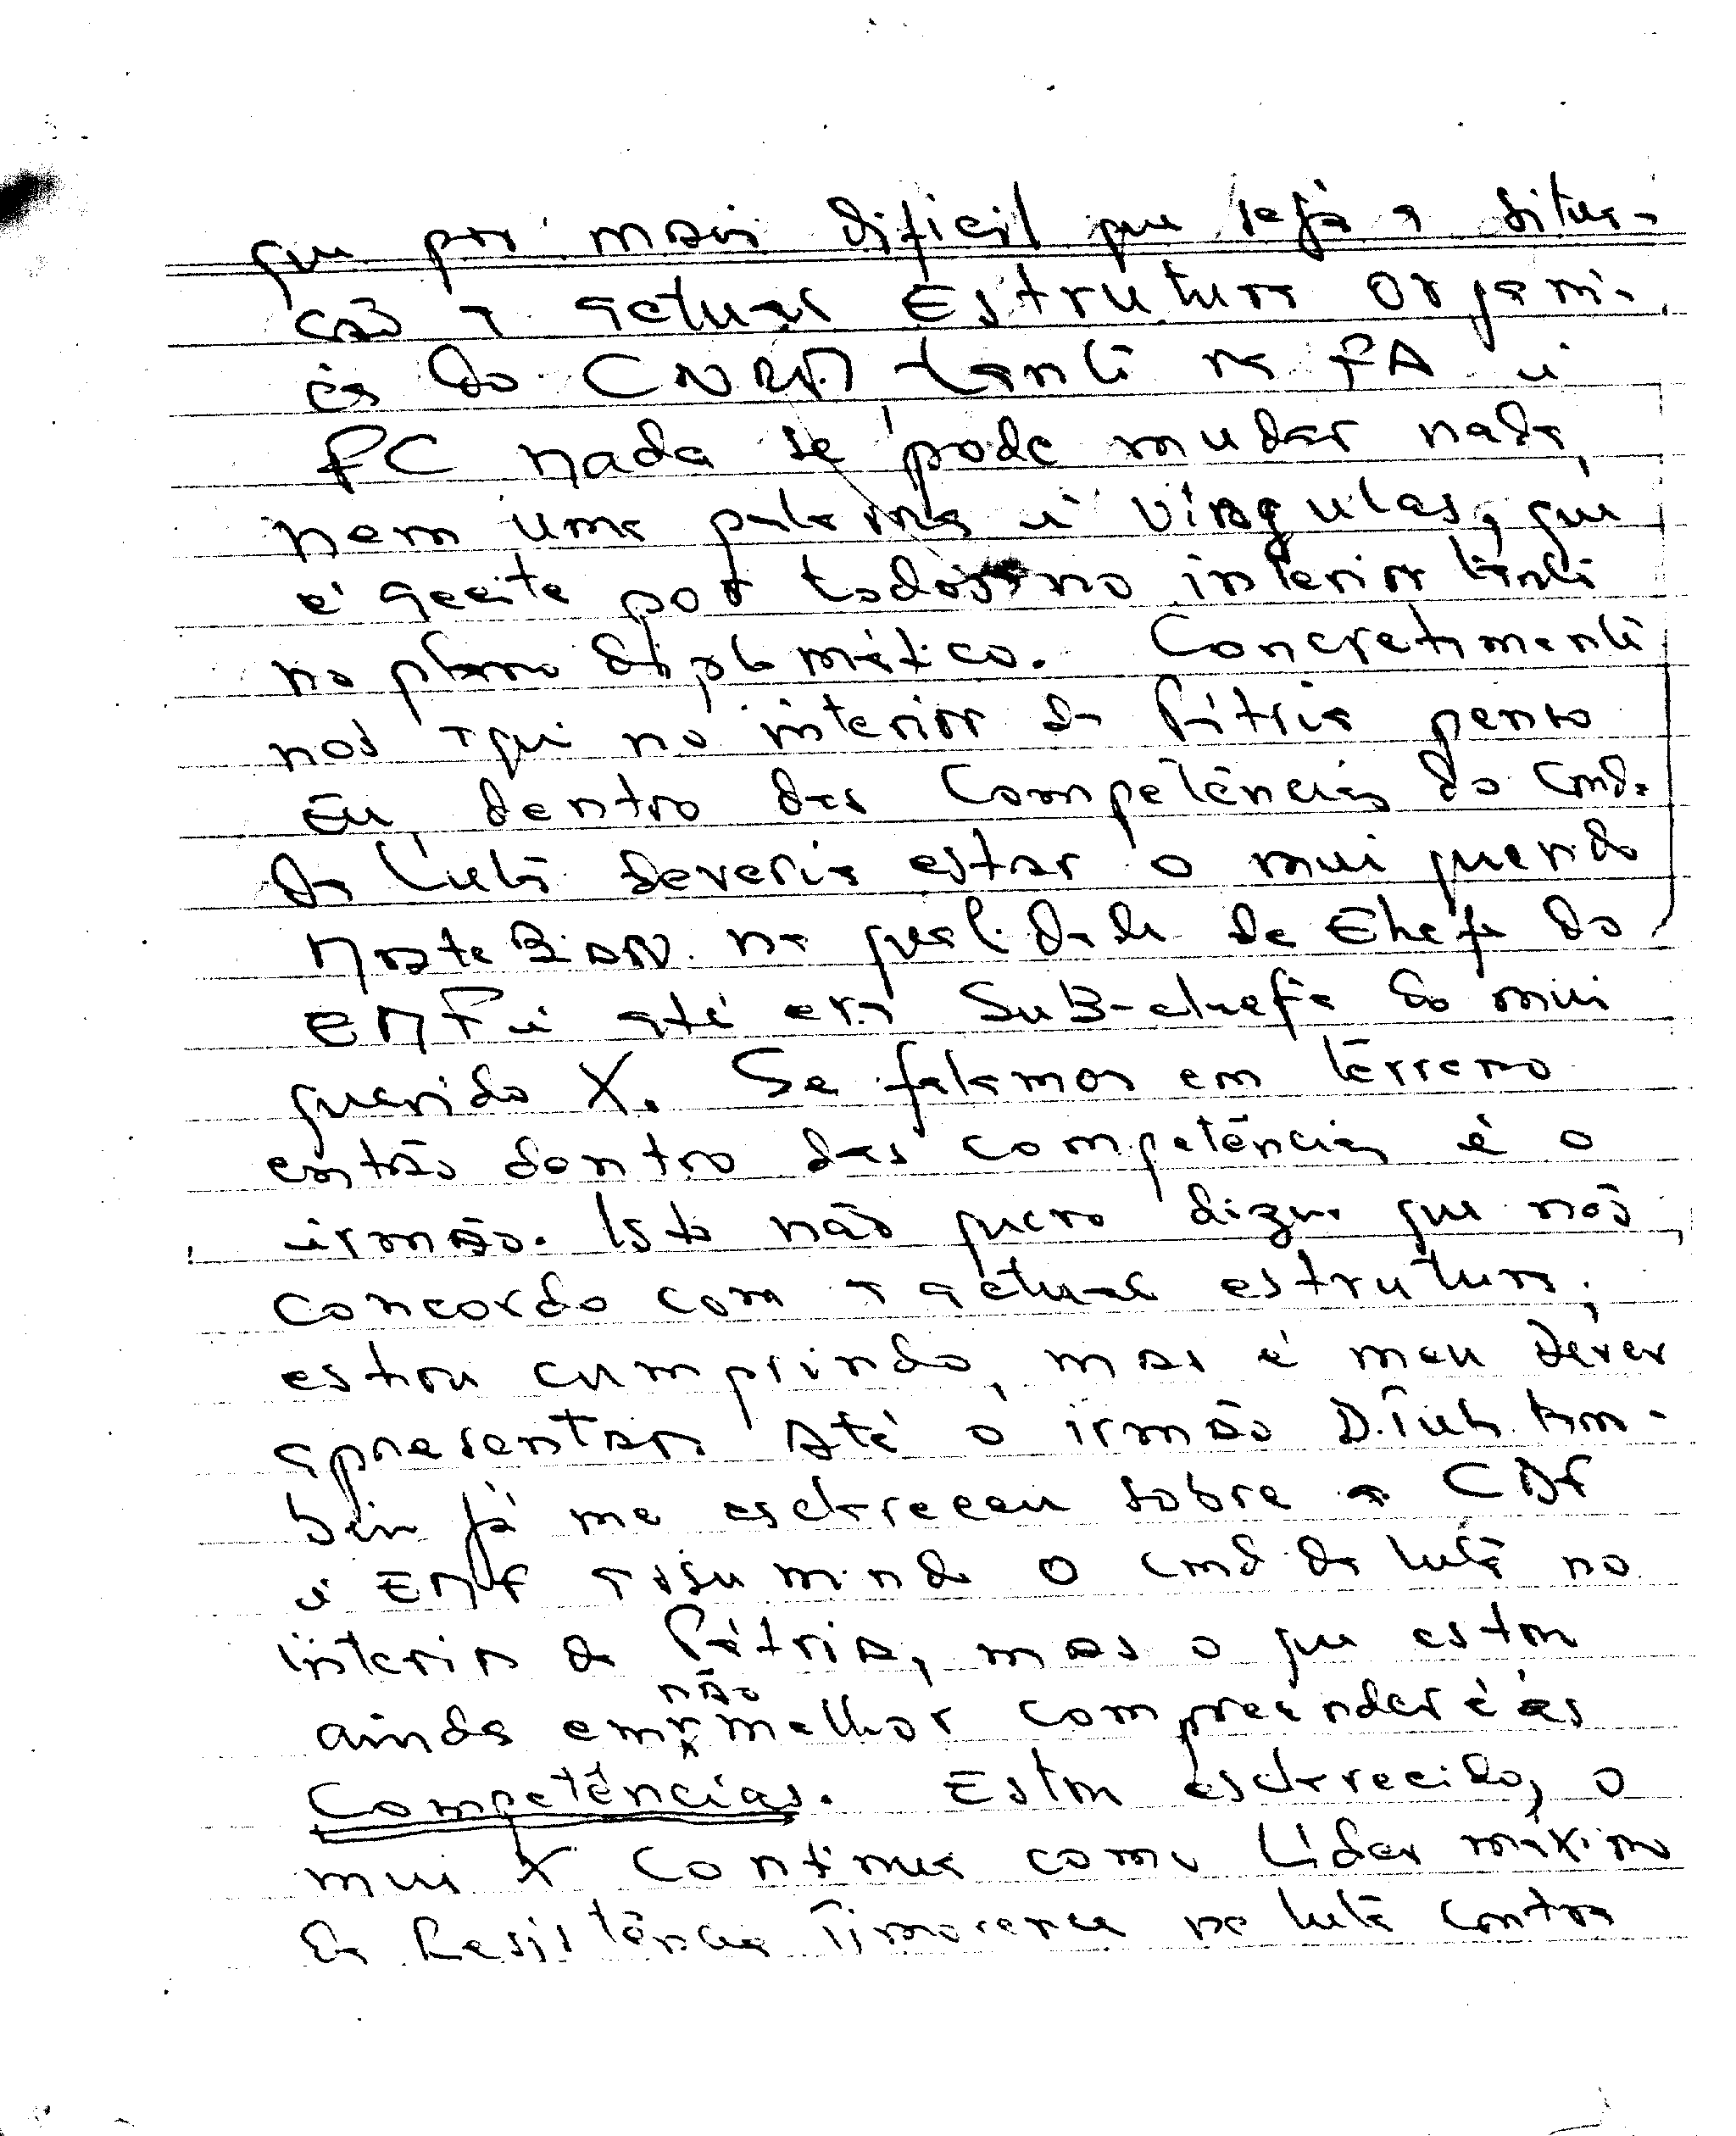 que por mais dificil que seja a situa-
ção a actual Estrutura Organi-
ca do CNRM tanto na FA e
FC nada se pode mudar nada,
nem uma palavra e vírgulas, que
é aceite por todos no interior tanto
no plano diplomático. Concretamente
nos aqui no interior da Pátria penso
Eu, dentro das Competências do Cmd.
da Luta deveria estar o mui querido
Mate Bian na qualidade de Chefe do
EMF e até era Sub-chefe do mui
querido X. Se falamos em terreno
então dentro das competências é o
irmão. Isto não quero dizer que nos
concordo com a actual estrutura,
estou cumprindo, mas é meu dever
apresentar. Até o irmão D. Tulo tam-
bém já me esclareceu sobre a CDF
e EMF assumindo o Cmd da luta no
interior da Pátria, mas o que estou
ainda em não melhor compreender é as
Competências. Estou esclarecido, o
mui X continua como Líder máximo
da Resistência Timorense na luta contra